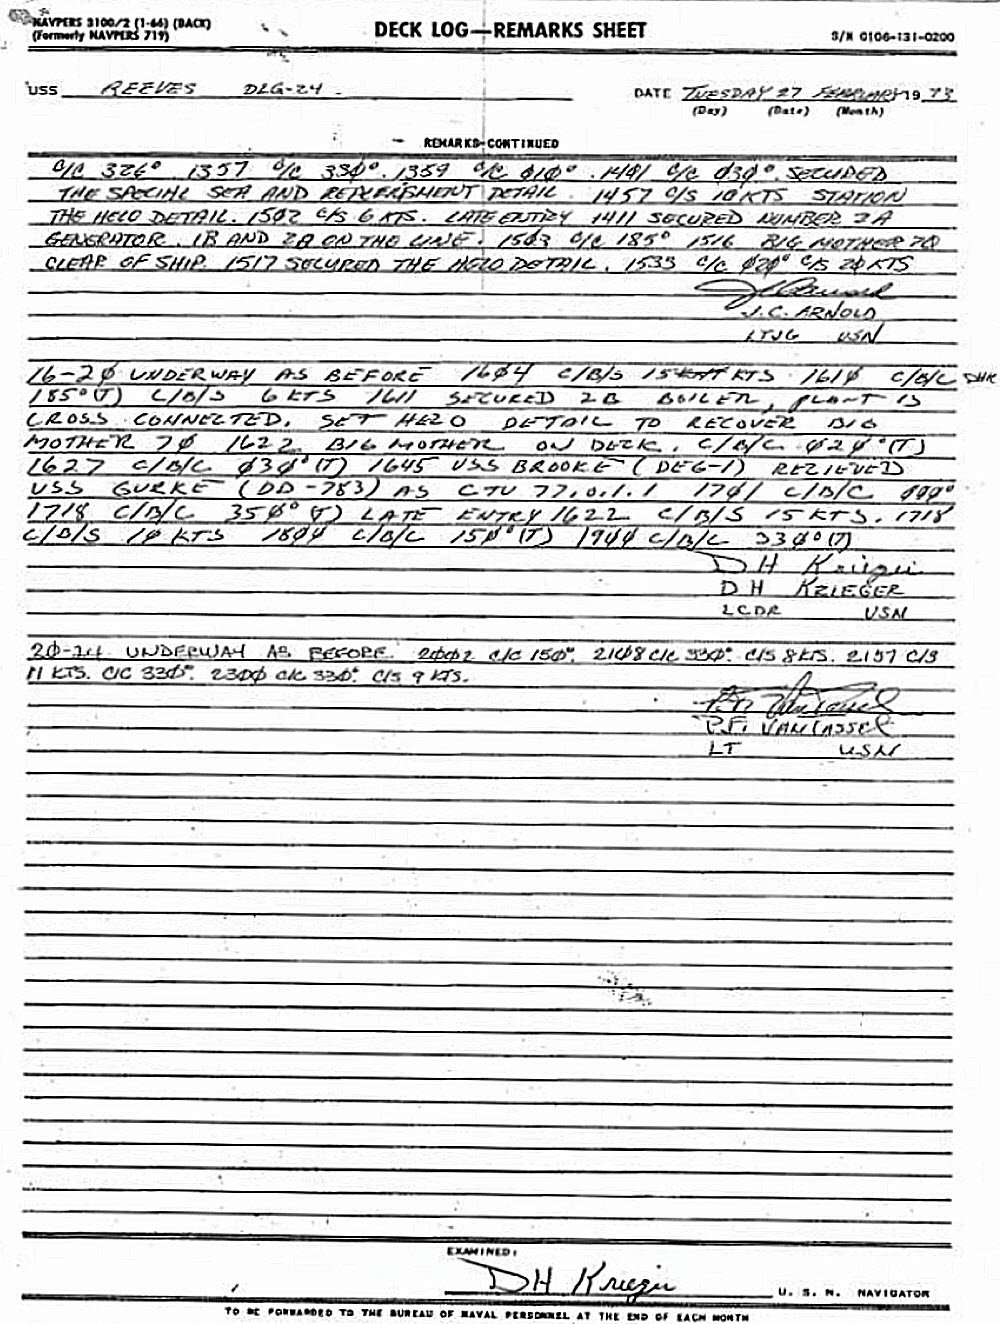 NAVPERS 3100/2 (1-66) (BACK)
(Formerly NAVPERS 719)
DECK LOG—REMARKS SHEET
S/N 0106-131-0200
USS REEVES DLG-24
DATE TUESDAY 27 FEBRUARY 19 73
(Day) (Date) (Month)
REMARKS-CONTINUED
C/C 326° 1357 C/C 33Ø°. 1359 C/C Ø1Ø°. 14Ø1 C/C Ø3Ø°. SECURED
THE SPECIAL SEA AND REPLENISHMENT DETAIL. 1457 C/S 1Ø KTS STATION
THE HELO DETAIL. 15Ø2 C/S 6 KTS. LATE ENTRY 1411 SECURED NUMBER 2A
GENERATOR. 1B AND 2B ON THE LINE. 15Ø3 C/C 185° 1516 BIG MOTHER 7Ø
CLEAR OF SHIP. 1517 SECURED THE HELO DETAIL. 1533 C/C Ø2Ø° C/S 2Ø KTS
J.C. ARNOLD
LTJG USN
16-2Ø UNDERWAY AS BEFORE 16Ø4 C/B/S 15 KTS 161Ø C/B/C DHK
185°(T) C/B/S 6 KTS 1611 SECURED 2B BOILER, PLANT IS
CROSS CONNECTED. SET HELO DETAIL TO RECOVER BIG
MOTHER 7Ø 1622 BIG MOTHER ON DECK. C/B/C Ø2Ø°(T)
1627 C/B/C Ø3Ø°(T) 1645 USS BROOKE (DEG-1) RELIEVED
USS GURKE (DD-783) AS CTU 77.0.1.1 17Ø1 C/B/C ØØØ°
1718 C/B/C 35Ø°(T) LATE ENTRY 1622 C/B/S 15 KTS. 1718
C/B/S 1Ø KTS 18ØØ C/B/C 15Ø°(T) 19ØØ C/B/C 33Ø°(T)
D H Krieger
D H KRIEGER
LCDR USN
2Ø-24 UNDERWAY AS BEFORE. 2ØØ2 C/C 15Ø°. 21Ø8 C/C 33Ø°. C/S 8 KTS. 2157 C/S
11 KTS. C/C 335°. 23ØØ C/C 33Ø°. C/S 9 KTS.
P.F. VANTASSEL
LT USN
EXAMINED:
DH Krieger
U. S. N. NAVIGATOR
TO BE FORWARDED TO THE BUREAU OF NAVAL PERSONNEL AT THE END OF EACH MONTH